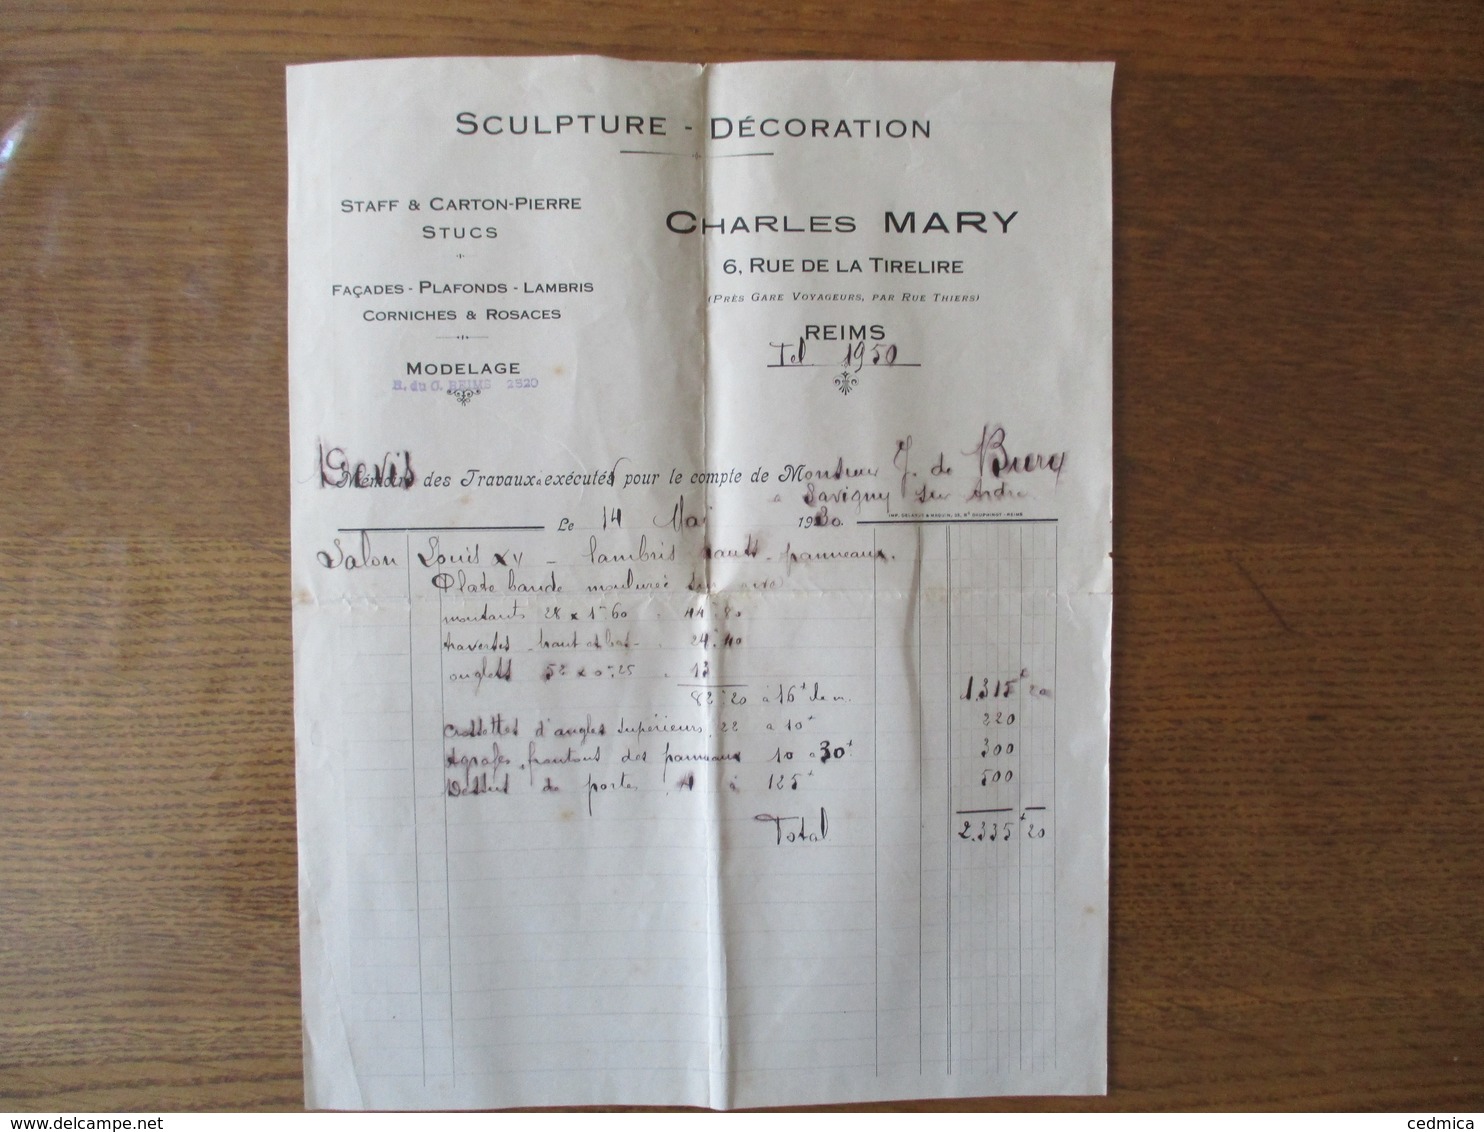 SCULPTURE - DÉCORATION
STAFF & CARTON-PIERRE
STUCS
FAÇADES - PLAFONDS - LAMBRIS
CORNICHES & ROSACES
MODELAGE
R. du C. REIMS 2820
CHARLES MARY
6, RUE DE LA TIRELIRE
(PRÈS GARE VOYAGEURS, PAR RUE THIERS)
REIMS
Tel 1950
Devis
Mémoire des Travaux à exécuter pour le compte de Monsieur J. de Bury
à Savigny sur Ardre
Le 14 Mai 1930.
IMP. DELARUE & MOQUIN, BD DAUPHINOT - REIMS
Salon Louis XV - lambris hauts - panneaux.
Plate bande moulurée
montants 28 x 1m60 44.80
traverses haut et bas 24.40
onglets 52 x 0m25 13
82.20 à 16f le m. 1.315f 20
Crossettes d'angles supérieurs 22 à 10f 220
Agrafes frontons des panneaux 10 à 30f 300
Dessus de portes 4 à 125f 500
Total 2.335f 20
cedmica